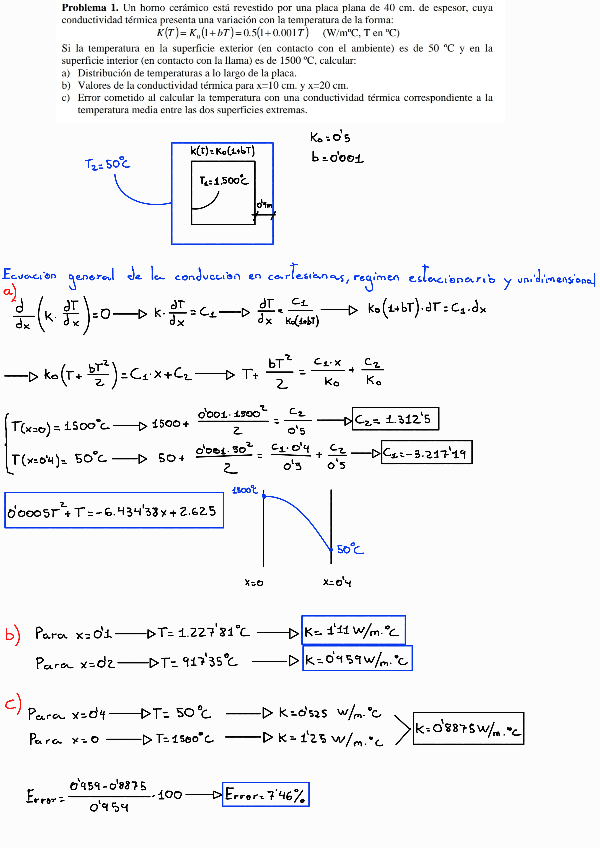 Problema 1. Un horno cerámico está revestido por una placa plana de 40 cm. de espesor, cuya
conductividad térmica presenta una variación con la temperatura de la forma:
K(T) = K₀(1+bT) = 0.5(1+0.001T) (W/mºC, T en ºC)
Si la temperatura en la superficie exterior (en contacto con el ambiente) es de 50 ºC y en la
superficie interior (en contacto con la llama) es de 1500 ºC, calcular:
a) Distribución de temperaturas a lo largo de la placa.
b) Valores de la conductividad térmica para x=10 cm. y x=20 cm.
c) Error cometido al calcular la temperatura con una conductividad térmica correspondiente a la
temperatura media entre las dos superficies extremas.
K₀=0'5
b=0'001
K(T)=K₀(1+bT)
T₂=50°C
T₁=1.500°C
0'4m
Ecuación general de la conducción en cartesianas, regimen estacionario y unidimensional
a)
d/dx (K· dT/dx)=0 → K· dT/dx = C₁ → dT/dx = C₁/K₀(1+bT) → K₀(1+bT)·dT=C₁·dx
→ K₀(T+ bT²/2)=C₁·x+C₂ → T+ bT²/2 = C₁·x/K₀ + C₂/K₀
T(x=0)=1500°C → 1500+ 0'001·1500²/2 = C₂/0'5 → C₂=1.312'5
T(x=0'4)= 50°C → 50+ 0'001·50²/2 = C₁·0'4/0'5 + C₂/0'5 → C₁=-3.217'19
0'0005T²+T=-6.434'38x+2.625
1500°C
50°C
x=0 x=0'4
b) Para x=0'1 → T=1.227'81°C → K=1'11 W/m.°C
Para x=02 → T=917'35°C → K=0'959 W/m.°C
c) Para x=0'4 → T=50°C → K=0'525 W/m.°C
Para x=0 → T=1500°C → K=1'25 W/m.°C
K=0'8875 W/m.°C
Error= 0'959-0'8875/0'959 ·100 → Error=7'46%